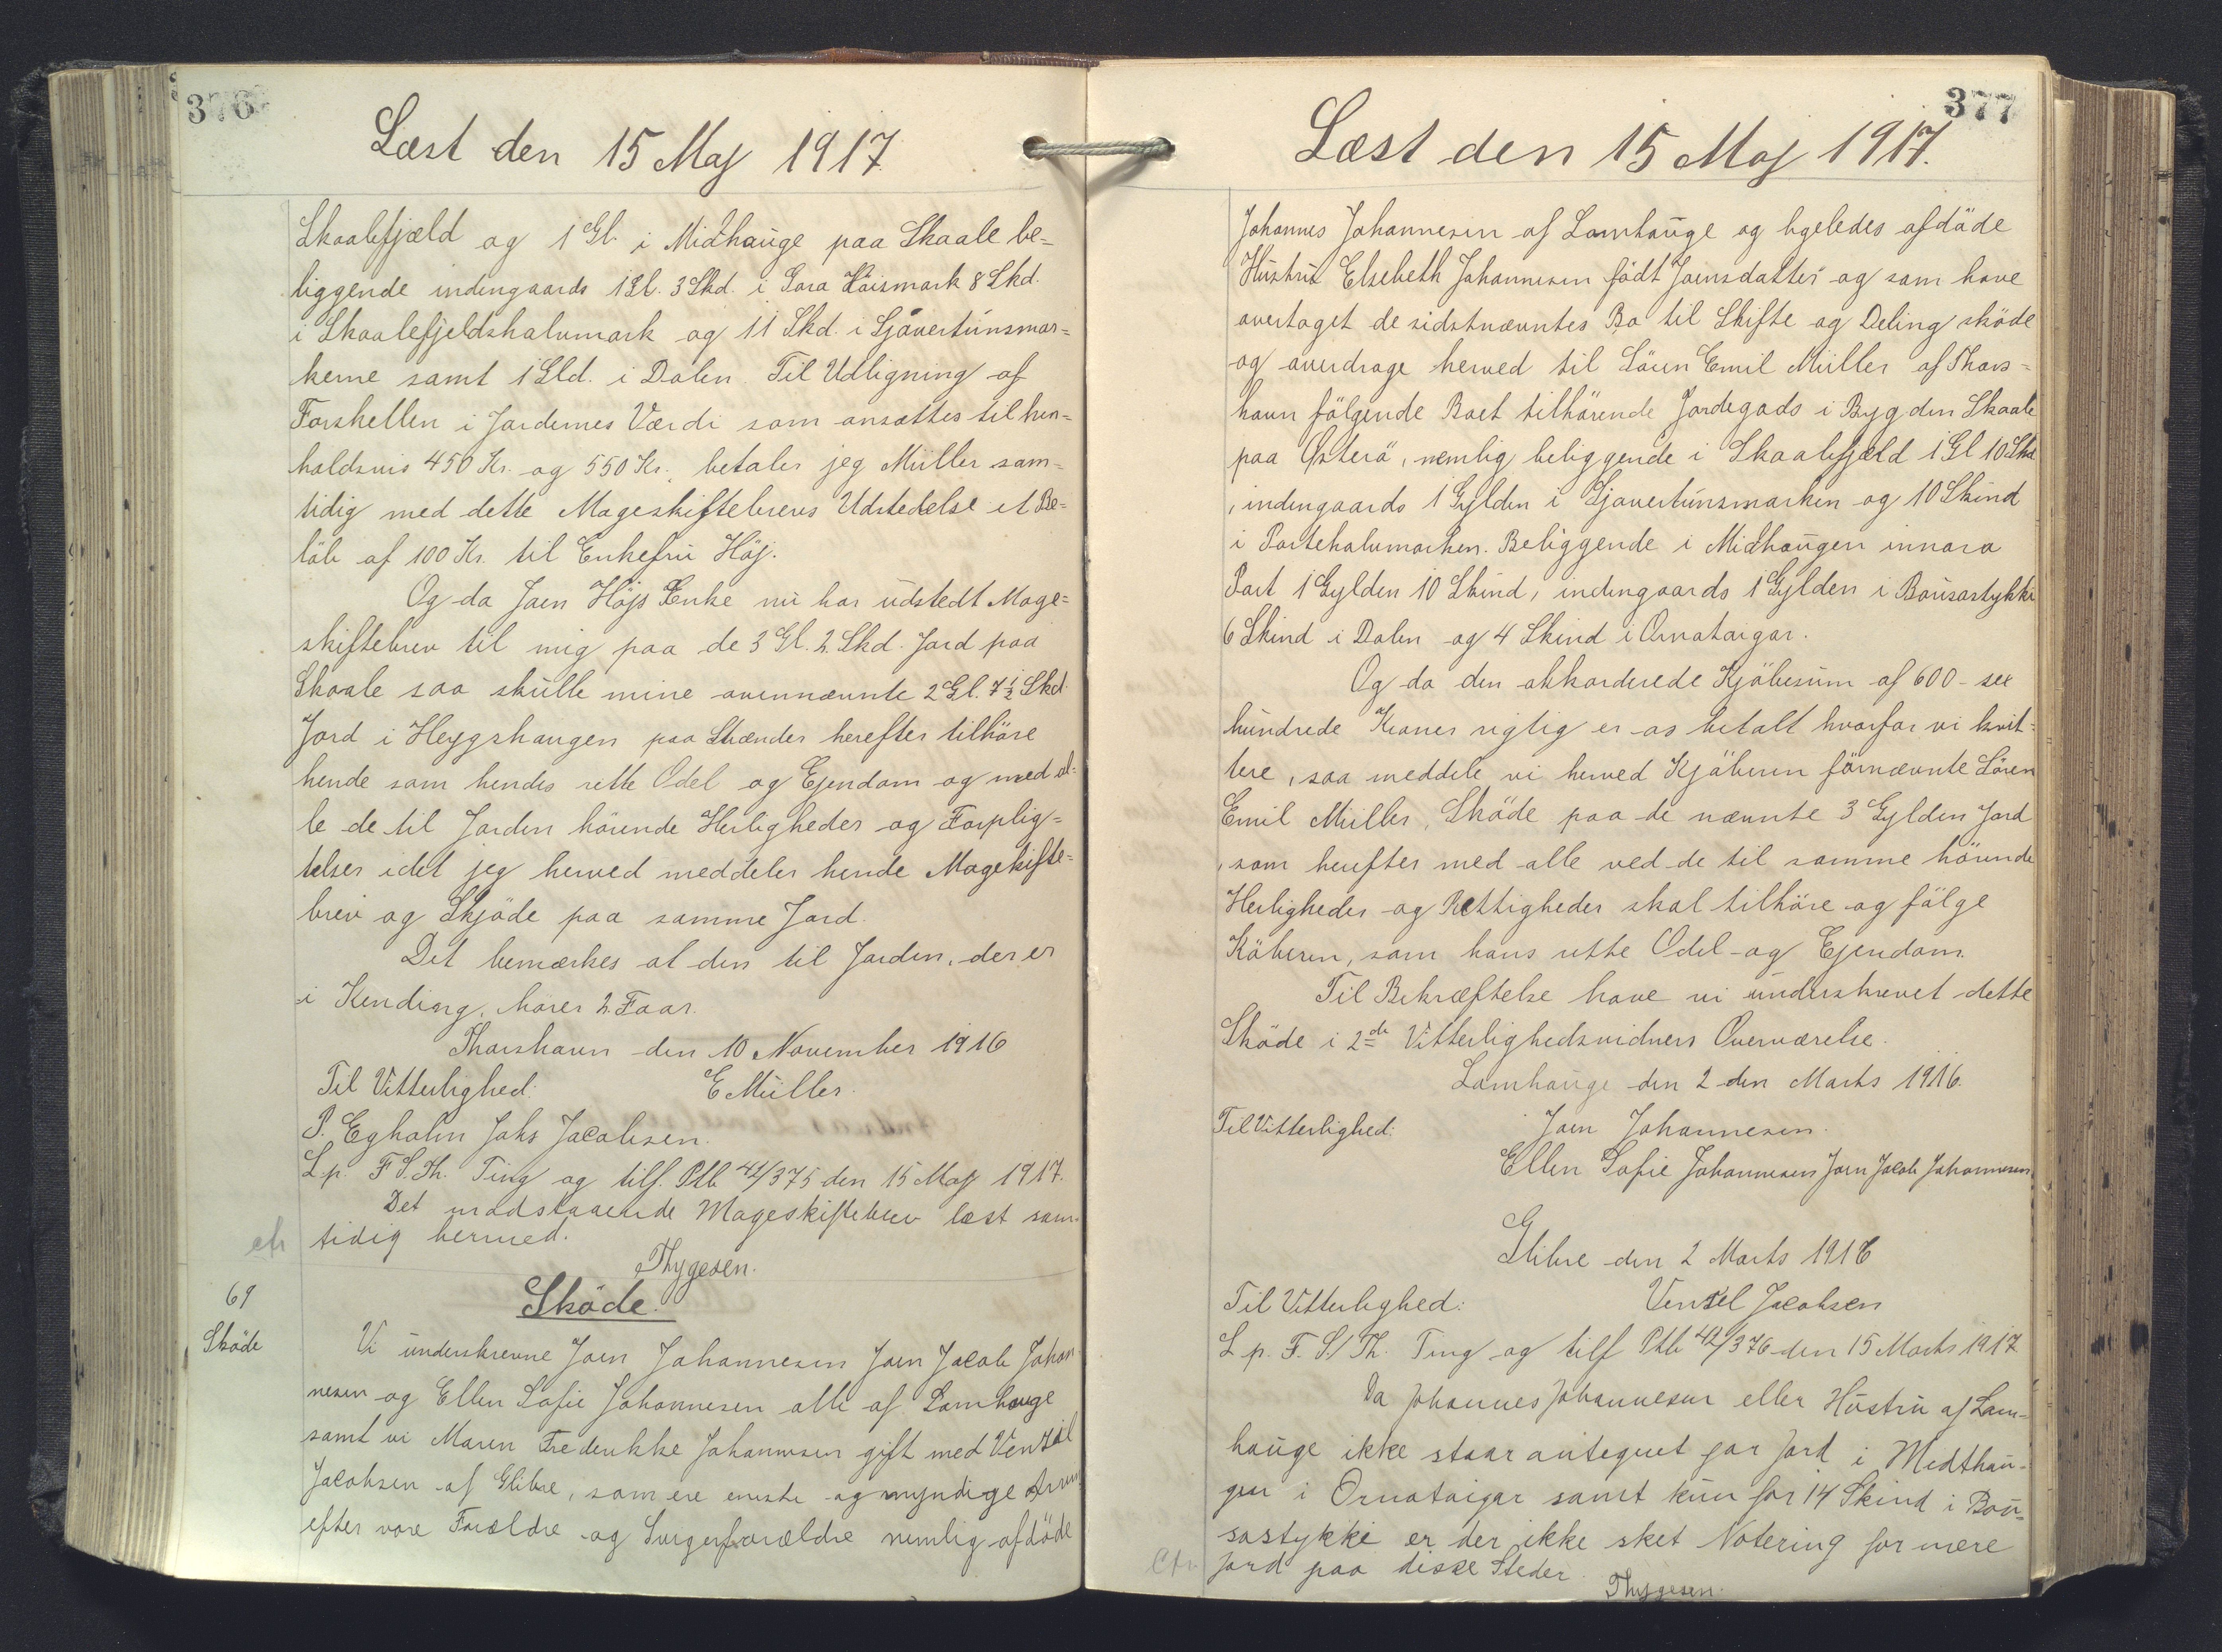 376
Læst den 15 Maj 1917
Skaalefjæld og 1 Gl. i Midhauge paa Skaale be=
liggende indengaards 1 Gl. 3 Skd. i Gora Kaismark 8 Skd.
i Skaalefjeldshalvmark og 11 Skd. i Gjóvertúnsmar=
kerne samt 1 Skd. i Dalen. Til Udligning af
Forskellen i Jordernes Værdi som ansættes til hen=
holdsvis 450 Kr. og 550 Kr., betaler jeg Müller sam=
tidig med dette Mageskiftebrevs Udstedelse et Be=
löb af 100 Kr. til Enkefru Höj.
Og da Joen Höjs Enke nu har udstedt Mage=
skiftebrev til mig paa de 3 Gl. 2 Skd. Jord paa
Skaale saa skulle mine ovennævnte 2 Gl. 7½ Skd.
Jord i Heygshaugen paa Strænder herefter tilhöre
hende som hendes rette Odel og Ejendom og med al=
le de til Jorden hörende Herligheder og Forplig=
telser idet jeg herved meddeler hende Mageskifte=
brev og Skjöde paa samme Jord.
Det bemærkes at den til Jorden, der er
i Kending, hörer 2 Faar.
Thorshavn den 10 November 1916
Til Vitterlighed: E Müller.
P. Egholm Johs Jacobsen.
L. p. F. S. Th. Ting og tilf. Ptb. 42/375 den 15 Maj 1917.
Det modstaaende Mageskiftebrev læst sam-
tidig hermed.
Thygesen.
69
Sköde
Sköde.
Vi underskrevne Joen Johannesen Joen Jacob Johan-
nesen og Ellen Sofie Johannesen alle af Lamhauge
samt vi Maren Frederikke Johannesen gift med Venzel
Jacobsen af Glibre, som ere eneste og myndige Arvin
efter vore Forældre og Svigerforældre nemlig afdöde
377
Læst den 15 Maj 1917.
Johannes Johannesen af Lamhauge og ligeledes afdöde
Hustru Elsebeth Johannesen födt Joensdatter og som have
overtaget de sidstnævntes Bo til Skifte og Deling sköde
og overdrage herved til Sören Emil Müller af Thors=
havn fölgende Boet tilhörende Jordegods i Bygden Skaale
paa Österö, nemlig beliggende i Skaalefjæld 1 Gl 10 Skd
, indengaards 1 Gylden i Gjovertúnsmarken og 10 Skind
i Partehalvmarken. Beliggende i Midhaugen innara
Part 1 Gylden 10 Skind, indengaards 1 Gylden i Bousastykki
6 Skind i Dalen og 4 Skind i Ornataigar.
Og da den akkorderede Kjöbesum af 600 - sex
hundrede Kroner rigtig er os betalt hvorfor vi kvit=
tere, saa meddele vi herved Kjöberen förnævnte Sören
Emil Müller, Sköde paa de nævnte 3 Gylden Jord
, som herefter med alle ved de til samme hörende
Herligheder og Rettigheder skal tilhöre og fölge
Köberen, som hans rette Odel og Ejendom.
Til Bekræftelse have vi underskrevet dette
Sköde i 2de Vitterlighedsvidners Overværelse.
Lamhauge den 2 den Marts 1916.
Til Vitterlighed: Joen Johannesen.
Ellen Sofie Johannesen Joen Jacob Johannesen.
Glibre den 2 Marts 1916
Til Vitterlighed: Venzel Jacobsen
L. p. F. S/ Th. Ting og tilf Ptb 42/376 den 15 Marts 1917
Da Johannes Johannesen eller Hustru af Lam=
hauge ikke staar antegnet for Jord i Midthau-
gen i Ornataigar samt kun for 14 Skind i Bou=
sastykki er der ikke sket Notering for mere
Jord paa disse Steder.
Thygesen.